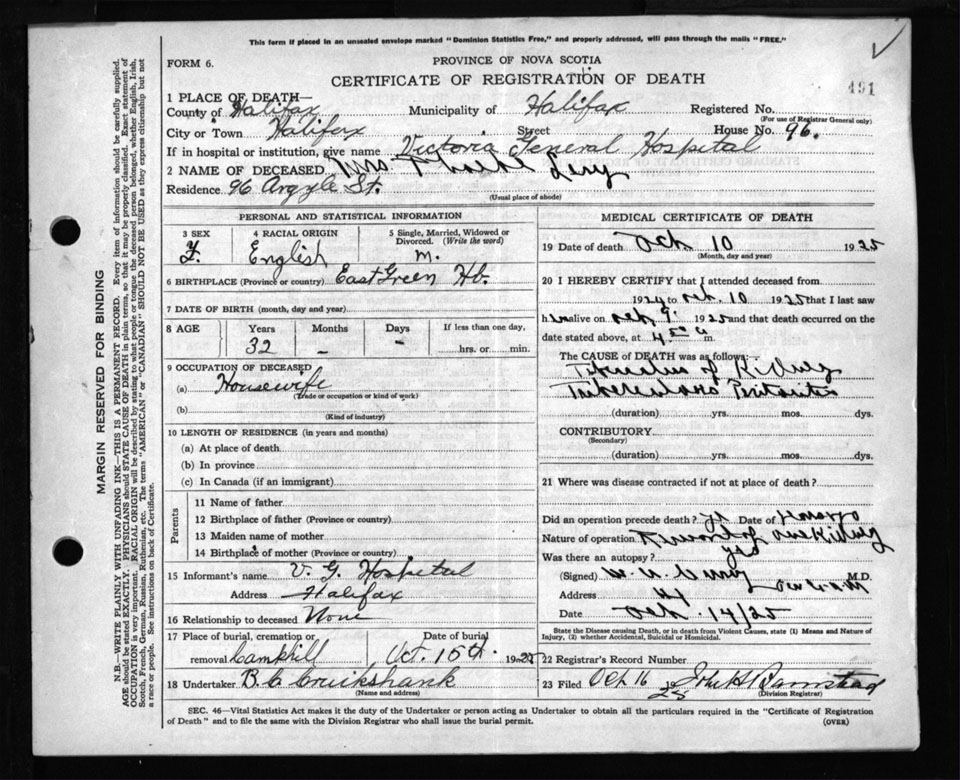 This form if placed in an unsealed envelope marked "Dominion Statistics Free," and properly addressed, will pass through the mails "FREE."
FORM 6.
PROVINCE OF NOVA SCOTIA
CERTIFICATE OF REGISTRATION OF DEATH
491
1 PLACE OF DEATH—
County of Halifax Municipality of Halifax Registered No.
(For use of Registrar General only)
City or Town Halifax Street House No. 96.
If in hospital or institution, give name Victoria General Hospital
2 NAME OF DECEASED Mrs.
Residence 96 Argyle St.
(Usual place of abode)
PERSONAL AND STATISTICAL INFORMATION
3 SEX 4 RACIAL ORIGIN 5 Single, Married, Widowed or Divorced. (Write the word)
F. English m.
6 BIRTHPLACE (Province or country) East Green Hb.
7 DATE OF BIRTH (month, day and year)
8 AGE Years Months Days If less than one day,
32 – – hrs. or min.
9 OCCUPATION OF DECEASED
(a) Housewife
(Trade or occupation or kind of work)
(b)
(Kind of industry)
10 LENGTH OF RESIDENCE (in years and months)
(a) At place of death
(b) In province
(c) In Canada (if an immigrant)
Parents
11 Name of father
12 Birthplace of father (Province or country)
13 Maiden name of mother
14 Birthplace of mother (Province or country)
15 Informant's name V. G. Hospital
Address Halifax
16 Relationship to deceased None
17 Place of burial, cremation or Date of burial
removal Camphill Oct. 15th. 1925
18 Undertaker B. C. Cruikshank
(Name and address)
MEDICAL CERTIFICATE OF DEATH
19 Date of death Oct 10 1925
(Month, day and year)
20 I HEREBY CERTIFY that I attended deceased from
1924 to Oct. 10 1925 that I last saw
h alive on 9. 1925 and that death occurred on the
date stated above, at m.
The CAUSE of DEATH was as follows:
of Kidney
Tuberculous
(duration) yrs. mos. dys.
CONTRIBUTORY
(Secondary)
(duration) yrs. mos. dys.
21 Where was disease contracted if not at place of death?
Did an operation precede death? yes Date of
Nature of operation Removal of Kidney
Was there an autopsy? yes
(Signed) M.D.
Address
Date Oct. 14/25
State the Disease causing Death, or in death from Violent Causes, state (1) Means and Nature of
Injury, (2) whether Accidental, Suicidal or Homicidal.
22 Registrar's Record Number
23 Filed Oct 16 1925 John H
Division Registrar
SEC. 46—Vital Statistics Act makes it the duty of the Undertaker or person acting as Undertaker to obtain all the particulars required in the "Certificate of Registration
of Death" and to file the same with the Division Registrar who shall issue the burial permit.
(OVER)
MARGIN RESERVED FOR BINDING
N.B.—WRITE PLAINLY WITH UNFADING INK—THIS IS A PERMANENT RECORD. Every item of information should be carefully supplied.
AGE should be stated EXACTLY. PHYSICIANS should STATE CAUSE OF DEATH in plain terms, so that it may be properly classified. Exact statement of
OCCUPATION is very important. RACIAL ORIGIN will be described by stating to what people or tongue the deceased person belonged, whether English, Irish,
Scotch, French, German, Russian, Ruthenian, etc. The terms "AMERICAN" or "CANADIAN" SHOULD NOT BE USED as they express citizenship but not
a race or people. See instructions on back of Certificate.